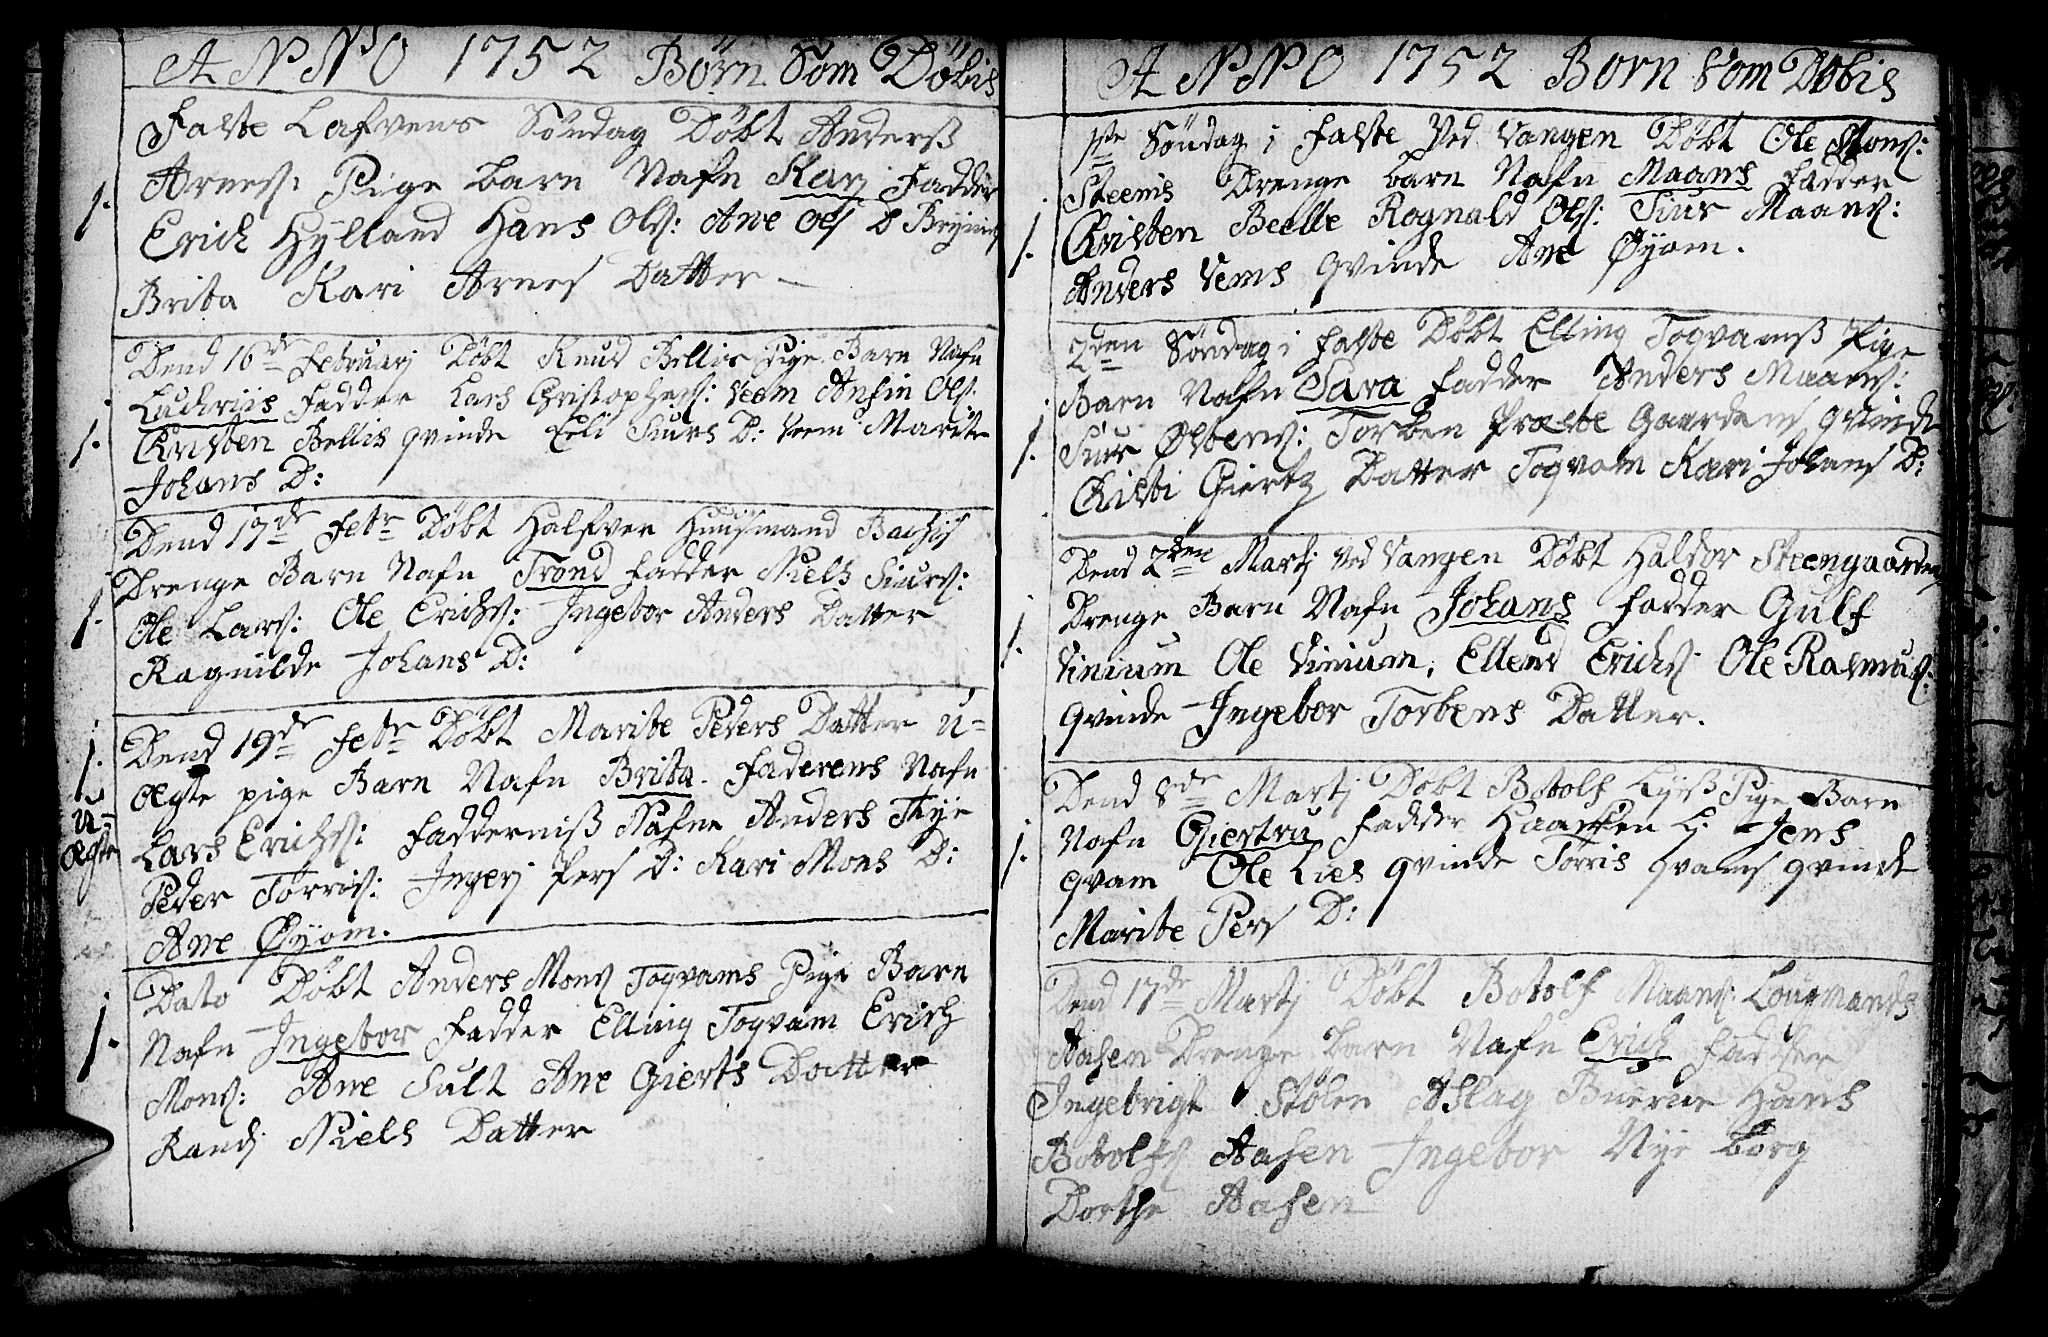 ANNO 1752 Børn Som Döbis
Faste Lafvens Söndag Döbt Anderß
Arnes: Pige barn Nafn Karj Fadder
1.
Erich Hÿlland Hans Ols: Ane Ols D
Brita Kari Arnes Datter
Dend 16de Februarj Döbt Knud Bellis pige Barn Nafn
Fadder Lars Christophers: Veem Ols:
1.
Christen Bellis qvinde Eeli Siurs D: Veem Marite
Johans D:
Dend 17de Febr Döbt Halfver Huusmand
Drenge Barn Nafn Trond Fadder Niels Siurs:
1.
Ole Lars: Ole Erichs: Ingebor Anders Datter
Ragnilde Johans D:
Dend 19de Febr Döbt Marite Peders Datter U-
1.
Ægte pige Barn Nafn Brita. Faderens Nafn
U-
Ægte
Lars Erichs: Fadderniß Nafne Anders
Peder Törris: Ingerj Pers D: Kari Mons D:
Ane Øyom.
Dato Döbt Anders Mons Togvams Pige Barn
1.
Nafn Ingebor Fadder Elling Togvam Erich
Mons: Ane Sult Ane Gierts Datter
Randj Niels Datter
ANNO 1752 Børn Som Döbis
1ste Söndag i Faste Ved Vangen Döbt Ole Mons:
Steenis Drenge barn Nafn Maans Fadder
1.
Christen Beelle Rognald Ols: Siur Maans:
Anders Vems qvinde Ane Øyom.
2den Söndag i Faste Döbt Elling Togvamß Pige
Barn Nafn Sara Fadder Anders Maans:
1.
Siur Østens: Torben Præste Gaardens qvinde
Christi Giertz Datter Togvam Kari Johans D:
Dend 2den Martj Ved Vangen Döbt Haldor Steengaardens
Drenge Barn Nafn Johans Fadder Gulf
1.
Vinium Ole Vinium, Ellend Erichs: Ole Rasmus:
qvinde Ingebor Torbens Datter.
Dend 8de Martj Döbt Botolf Lyß Pige Barn
Nafn Giertru Fadder Haarken L: Jens
1.
qvam Ole Lies qvinde Törris qvams qvinde
Marite Pers D:
Dend 17de Martj Döbt Botolf Maans:
Aasen Drenge Barn Nafn Erich Fadder
Ingebrigt Stölen Aslag Hans
Botolfs Aasen Ingebor Nye borg
Dorthe Aasen